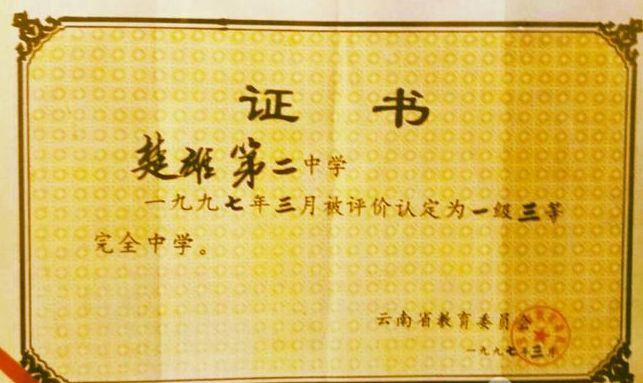 证 书
楚雄第二中学
一九九七年三月被评价认定为一级三等
完全中学。
云南省教育委员会
一九九七年三月